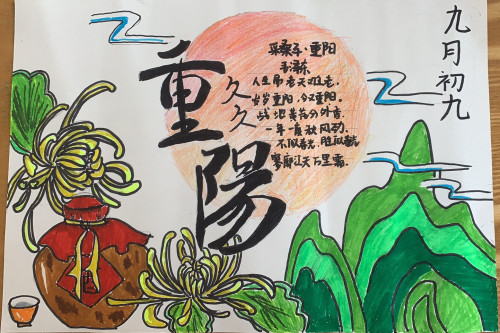 九月初九
重陽
久久
采桑子·重阳
毛泽东
人生易老天难老,
岁岁重阳,今又重阳,
战地黄花分外香.
一年一度秋风劲,
不似春光,胜似春光,
寥廓江天万里霜.
酒